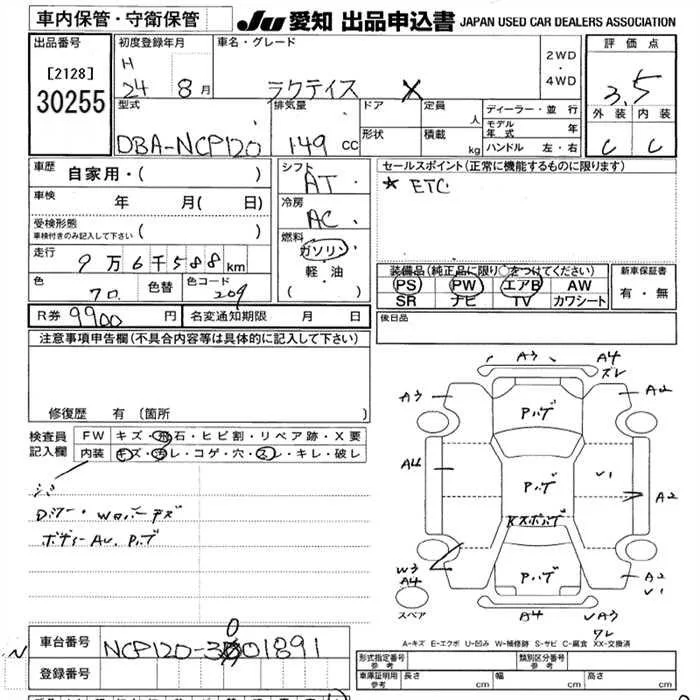 車内保管・守衛保管
JU 愛知 出品申込書 JAPAN USED CAR DEALERS ASSOCIATION
出品番号
[2128]
30255
初度登録年月
H
24 8月
車名・グレード
ラクティス X
2WD
・
4WD
評価点
3.5
外装 内装
C C
型式
DBA-NCP120
排気量
149 cc
ドア
形状
定員
人
積載
kg
ディーラー・並行
モデル
年式 年
ハンドル 左・右
車歴
自家用・( )
車検
年 月( 日)
受検形態
車検付きのみ記入して下さい ( )
走行
9万6千588km
色
70
色替
色コード
209
シフト
AT
冷房
AC
燃料
ガソリン
軽・油
( )
セールスポイント(正常に機能するものに限ります)
★ ETC
装備品(純正品に限り○をつけてください)
PS PW エアB AW
SR ナビ TV カワシート
新車保証書
有・無
R券 9900 円
名変通知期限 月 日
後日品
注意事項申告欄(不具合内容等は具体的に記入して下さい)
修復歴 有(箇所 )
検査員
記入欄
FW キズ・飛石・ヒビ割・リペア跡・X要
内装 キズ・汚レ・コゲ・穴・スレ・キレ・破レ
ボディーAU. Pハゲ
A3
A4
ズレ
A3
A2
Pハゲ
A4
Pハゲ
V1
A2
Pハゲ
W3
A4
A2
V1
スペア
A4
VA3
ワレ
A-キズ E-エクボ U-凹み W-補修跡 S-サビ C-腐食 XX-交換済
車台番号
NCP120-3001891
登録番号
形式指定番号
参考
類別区分番号
参考
車庫証明用
参考
長さ cm
幅 cm
高さ cm